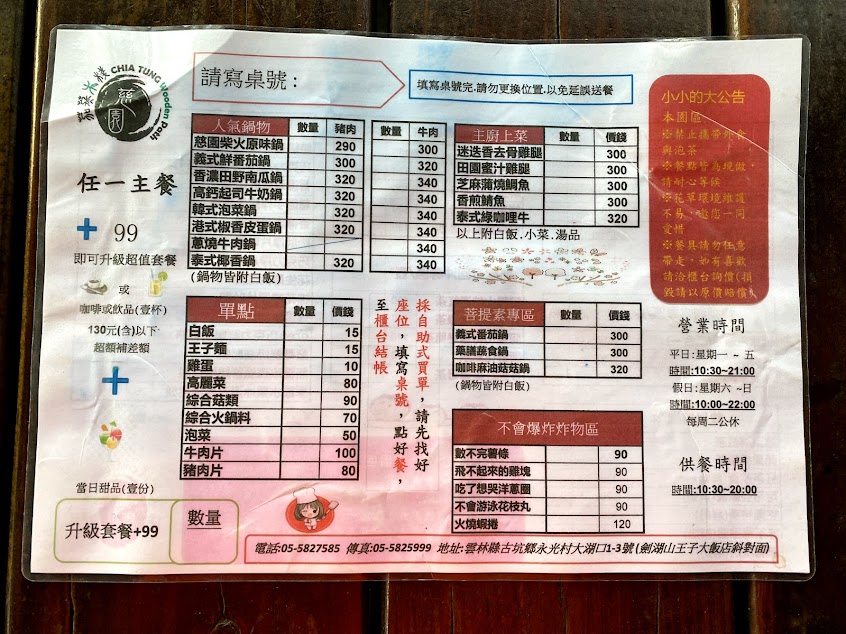 嘉蕂木棧 CHIA TUNG Wooden Path
慈園
請寫桌號:
填寫桌號完,請勿更換位置,以免延誤送餐
任一主餐
+ 99
即可升級超值套餐
或
咖啡或飲品(壹杯)
130元(含)以下
超額補差額
+
當日甜品(壹份)
升級套餐+99 數量
人氣鍋物 數量 豬肉 數量 牛肉
慈園柴火原味鍋 290 300
義式鮮番茄鍋 300 320
香濃田野南瓜鍋 320 340
高鈣起司牛奶鍋 320 340
韓式泡菜鍋 320 340
港式椒香皮蛋鍋 320 340
蔥燒牛肉鍋 340
泰式椰香鍋 320 340
(鍋物皆附白飯)
主廚上菜 數量 價錢
迷迭香去骨雞腿 300
田園蜜汁雞腿 300
芝麻蒲燒鯛魚 300
香煎鯖魚 300
泰式綠咖哩牛 320
以上附白飯,小菜,湯品
單點 數量 價錢
白飯 15
王子麵 15
雞蛋 10
高麗菜 80
綜合菇類 90
綜合火鍋料 70
泡菜 50
牛肉片 100
豬肉片 80
採自助式買單,請先找好
座位,填寫桌號,點好餐,
至櫃台結帳
菩提素專區 數量 價錢
義式番茄鍋 300
藥膳蔬食鍋 300
咖啡麻油菇菇鍋 320
(鍋物皆附白飯)
不會爆炸炸物區
數不完薯條 90
飛不起來的雞塊 90
吃了想哭洋蔥圈 90
不會游泳花枝丸 90
火燒蝦捲 120
小小的大公告
本園區
※禁止攜帶外食
與泡茶
※餐點皆為現做,
請耐心等候
※花草環境維護
不易,邀您一同
愛惜
※餐具請勿任意
帶走,如有喜歡
請洽櫃台詢價(損
毀請以原價賠償)
營業時間
平日:星期一 ~ 五
時間:10:30~21:00
假日:星期六 ~日
時間:10:00~22:00
每周二公休
供餐時間
時間:10:30~20:00
電話:05-5827585 傳真:05-5825999 地址:雲林縣古坑鄉永光村大湖口1-3號(劍湖山王子大飯店斜對面)